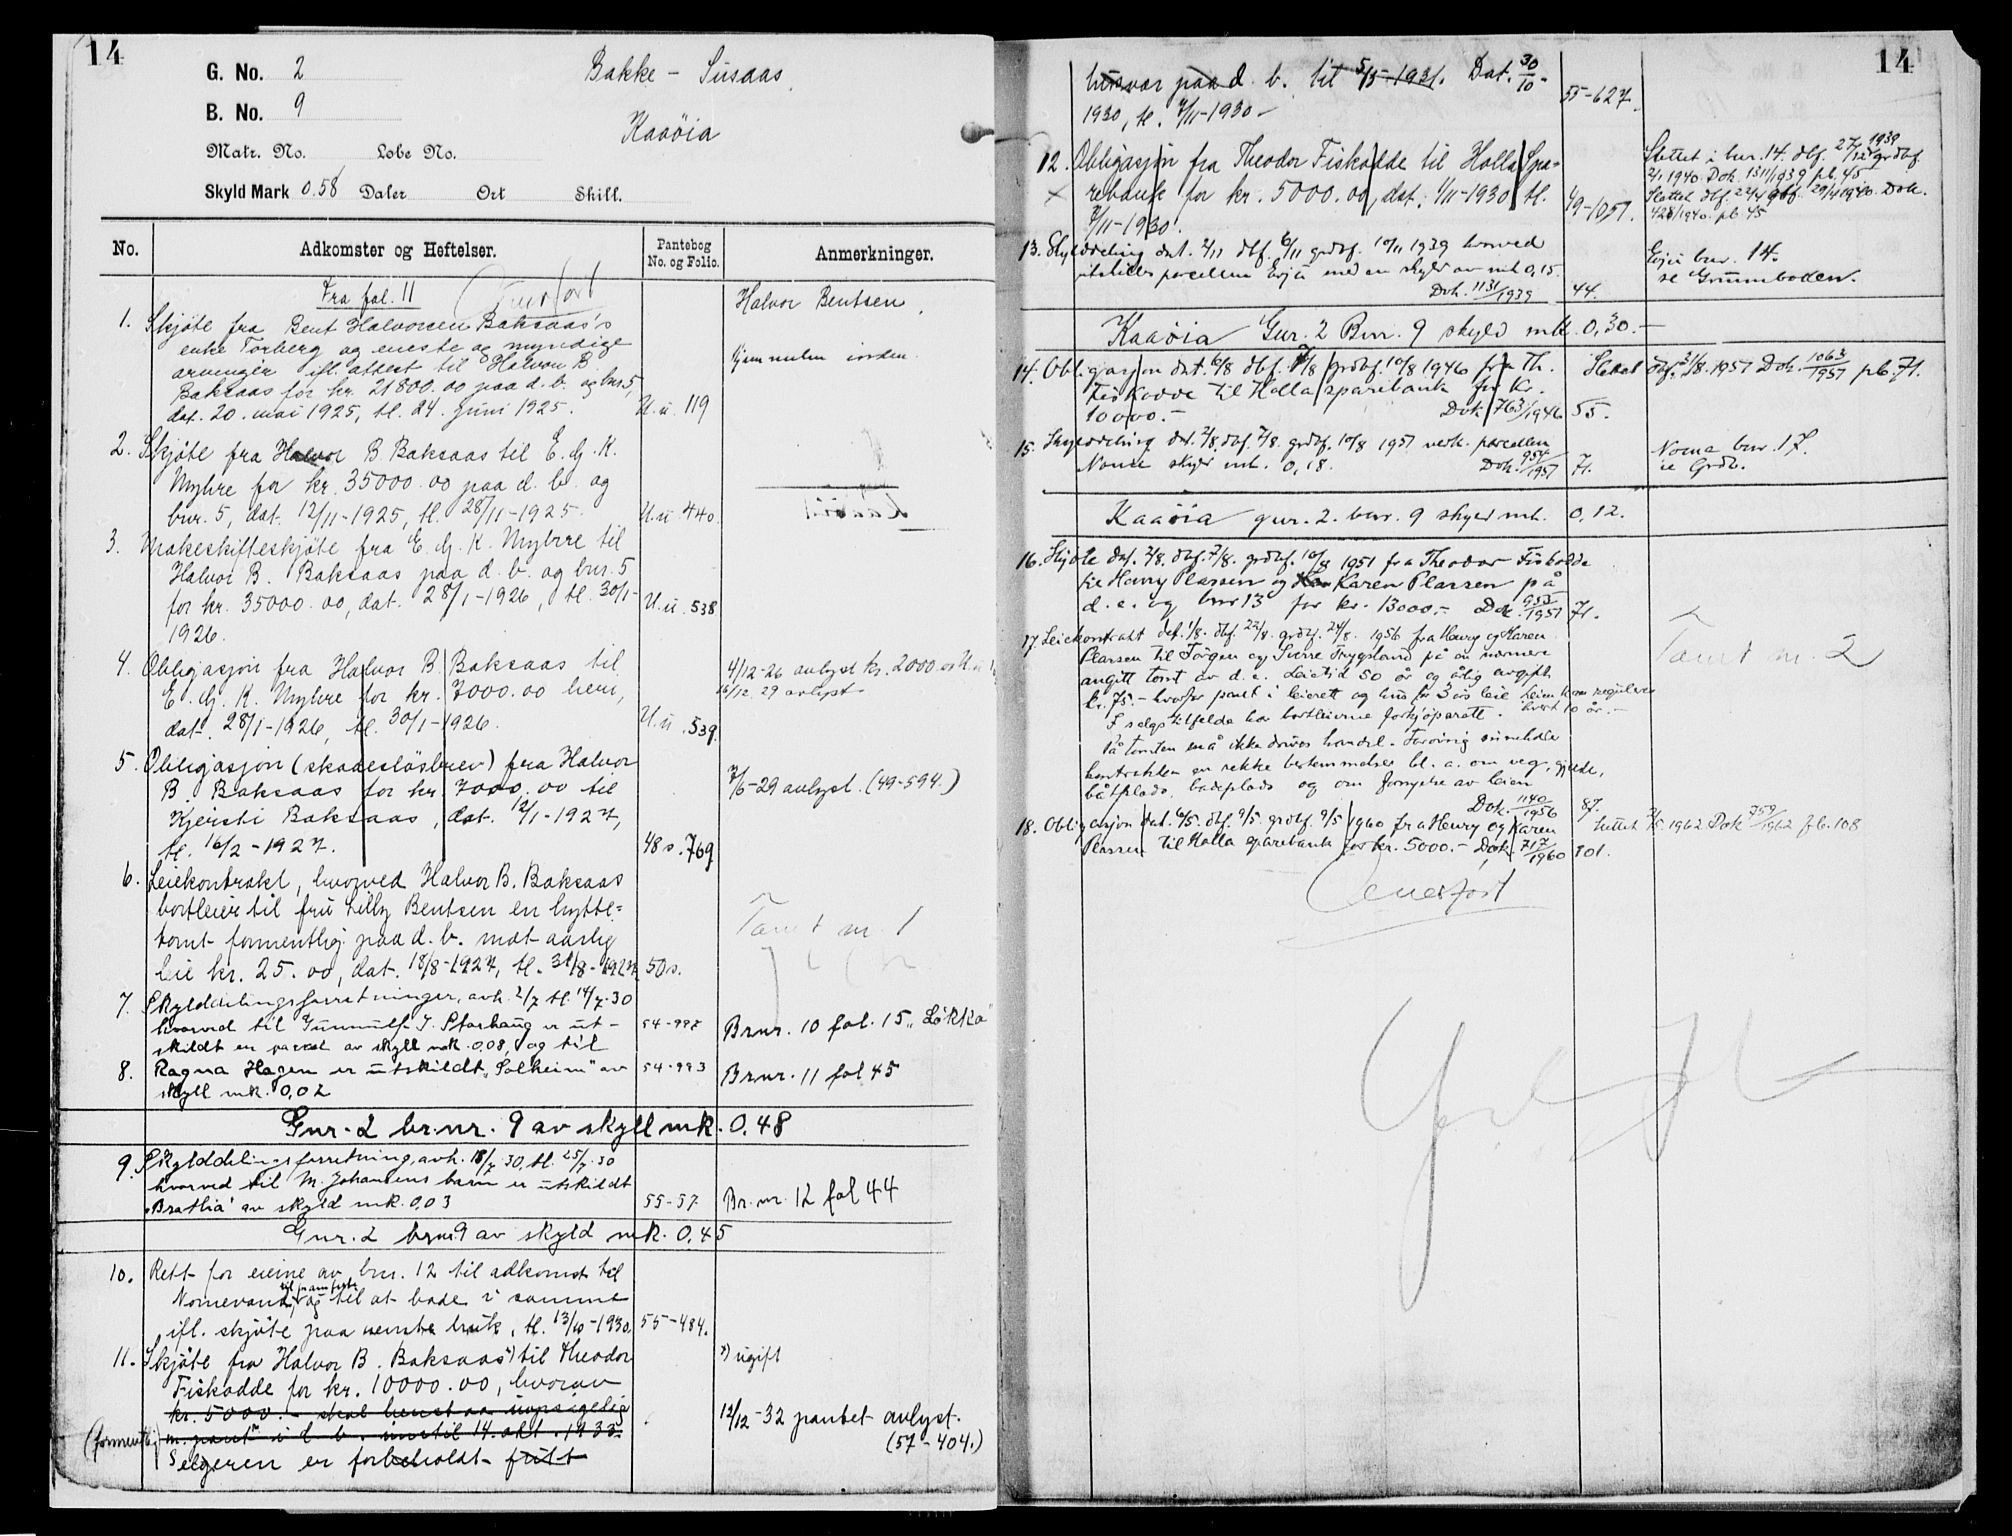 14
G. No. 2
Bakke - Susaas.
B. No. 9
Kaaöia
Matr. No. Løbe No.
Skyld Mark 0.58 Daler Ort Skill.
No. Adkomster og Heftelser. Pantebog No. og Folio. Anmerkninger.
Fra fol. 11
Overfört
1. Skjöte fra Bent Halvorsen Baksaas's
enke Torberg og eneste og myndige
arvinger ifl. attest til Halvor B.
Baksaas for kr. 21800.00 paa d. b. og bnr 5,
dat. 20. mai 1925, tl. 24. juni 1925. U.u. 119
Halvor Bentsen
hjemmelen iorden.
2. Skjöte fra Halvor B. Baksaas til E. G. K.
Myhre for kr. 35000.00 paa d. b. og
bnr. 5, dat. 12/11-1925, tl. 28/11-1925. U.u. 440.
3. Makeskifteskjöte fra E. G. K. Myhre til
Halvor B. Baksaas paa d. b. og bnr. 5
for kr. 35000.00, dat. 28/1-1926, tl. 30/1-
1926. U.u. 538
4. Obligasjon fra Halvor B. Baksaas til
E. G. K. Myhre for kr. 7000.00 heri,
dat. 28/1-1926, tl. 30/1-1926. U.u. 539.
4/12-26 avlyst kr. 2000.00 U.u.
16/12. 29 avlyst
5. Obligasjon (skadeslösbrev) fra Halvor
B. Baksaas for kr. 7000.00 til
Kjersti Baksaas, dat. 12/1-1927,
tl. 16/2-1927. 48 s. 769
7/6-29 avlyst. (49-594.)
6. Leiekontrakt, hvorved Halvor B. Baksaas
bortleier til fru Lilly Bentsen en hytte=
tomt formentlig paa d. b. mot aarlig
leie kr. 25.00, dat. 18/8-1927, tl. 31/8-1927 50 s.
Tomt nr. 1
7. Skylddelingsforretninger, avh. 2/7 tl. 14/7-30
hvorved til Gunnulf J. Storhaug er ut-
skildt en parcel av skyll mk. 0,08, og til 54-997
Brnr. 10 fol. 15 „Løkka"
8. Ragna Hagen er utskildt „Solheim" av
skyll mk. 0,02 54-993
Brnr. 11 fol 45
Gnr. 2 br.nr. 9 av skyll mk. 0.48
9. Skylddelingsforretning, avh. 18/7-30, tl. 25/7-30
hvorved til M. Johansens barn er utskildt
„Bratlia" av skyld mk. 0,03 55-57 Br.nr. 12 fol 44
Gnr. 2 brnr 9 av skyld mk. 0.45
10. Rett for eieine av bnr. 12 til adkomst til
til framfeste
Nomevand, og til at bade i samme
ifl. skjöte paa nevnte bruk, tl. 13/10-1930, 55-484.
11. Skjöte fra Halvor B. Baksaas x) til Theodor
Fiskodde for kr. 10000.00, hvorav
kr. 5000.- skal henstaa uopsigelig
(formentlig) m. pant i d. b. inntil 14. okt. 1935.
Selgeren er forbeholdt fritt
x) ugift
12/12-32 pantet avlyst.
(57-404.)
14
husvær paa d. b. til 5/5-1931. Dat. 30/10-
1930, tl. 7/11-1930- 55-627.
12. Obligasjon fra Theodor Fiskodde til Holla Spa-
x rebank for kr. 5000.00, dat. 1/11-1930 tl.
7/11-1930. 49-1057.
Slettet i bnr. 14. dbf. 27/12 1939 grdbf.
2/1 1940. Dok. 1311/1939 pb. 45
Slettet dbf. 22/4 grdbf. 29/4 1940. Dok.
428/1940. pb. 45
13. Skylddeling dat. 2/11 dbf. 6/11 grdbf. 10/11 1939 hvorved
utskilles parcellen Evju med en skyld av mk 0,15.
Dok. 1131/1939 44.
Evju bnr. 14.
se Grunnboken.
Kaaöia Gnr. 2 Bnr. 9 skyld mk. 0,30.-
14. Obligasjon dat. 6/8 dbf. 9/8 grdbf. 10/8 1946 fra Th.
Fiskodde til Holla sparebank for kr.
10000.- Dok. 763/1946 55.
Slettet dbf. 21/8. 1957 Dok. 1063/1957 pb. 71.
15. Skylddeling dat. 2/8. dbf. 7/8. grdbf. 10/8 1951 vedk. parcellen
Nome skyld mk. 0,18. Dok. 954/1951 71.
Nome bnr. 17.
se Grdb.
Kaaöia gnr. 2. bnr. 9 skyld mk. 0,12.
16. Skjöte dat. 2/8. dbf. 7/8. grdbf. 10/8 1951 fra Theodor Fiskodde
til Henry Plassen og Karen Plassen på
d. e. og bnr 13 for kr. 13000.- Dok. 953/1951 71.
17. Leiekontrakt dat. 1/8. dbf. 22/8. grdbf. 24/8. 1956 fra Henry og Karen
Plassen til Jörgen og Sverre Trygsland på en nærmere
angitt tomt av d. e. Leietid 50 år og årlig avgift
kr. 75.- hvorfor pant i leierett og hus for 3 års leie Leien kan reguleres
hvert 10 år.-
I salgstilfelde har bortleierne forkjöpsrett.
På tomten må ikke drives handel. Forövrig inneholder
kontrakten en rekke bestemmelser bl. a. om veg, gjerde,
båtplads, badeplads og om fornyelse av leien
Dok. 1140/1956 87.
Tomt nr. 2
18. Obligasjon dat. 6/5. dbf. 9/5. grdbf. 9/5 1960 fra Henry og Karen
Plassen til Holla sparebank for kr. 5000.- Dok. 717/1960 101.
Slettet 7/5. 1962 Dok 759/1962 pb. 108
Overfört